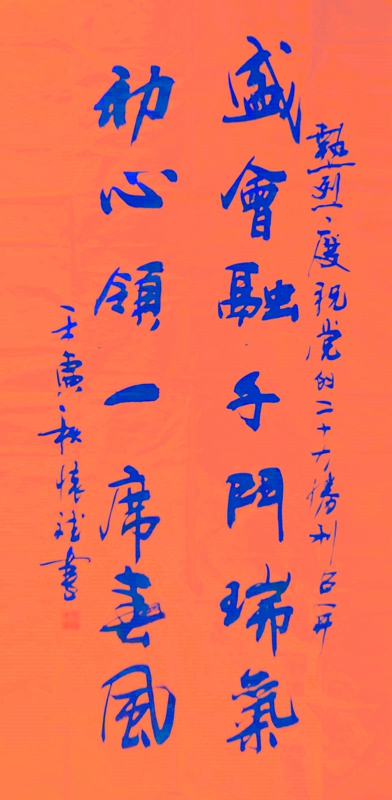 熱烈慶祝党的二十大勝利召开
盛會融千門瑞氣
初心領一席春風
壬寅秋懷斌書